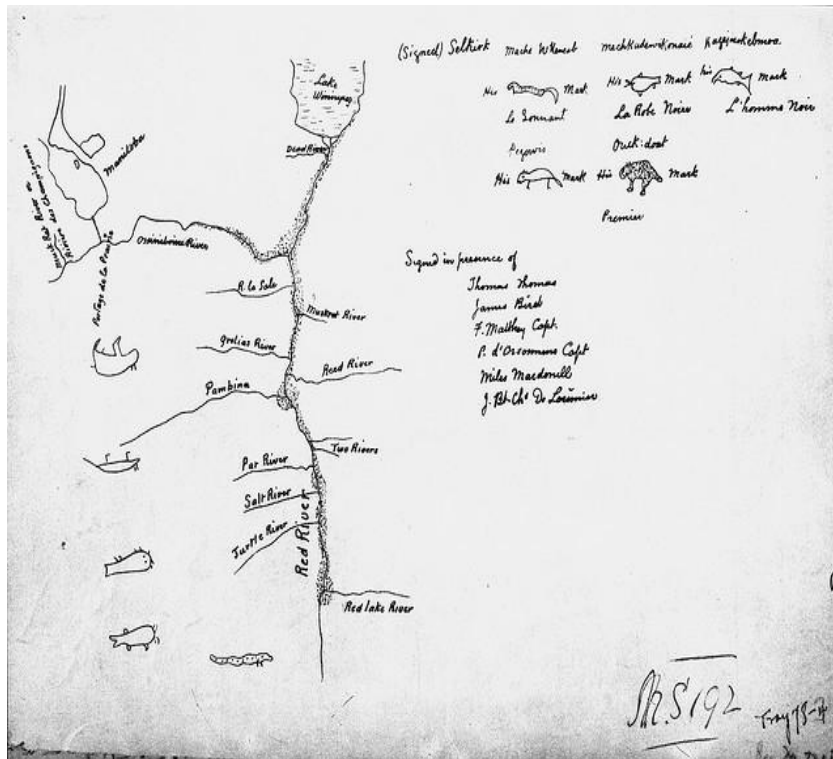 (Signed) Selkirk Mache Wheseab Machkadewikonaié Kayajieskebinoa
His Mark His Mark his Mark
Le Sonnant La Robe Noire L'homme Noir
Pegowis Ouck:doat
His Mark His Mark
Premier
Signed in presence of
Thomas Thomas
James Bird
F. Matthey Capt.
P. d'Orsonnens Capt
Miles Macdonell
J. Bt Chs De Lorimier
Lake
Winnipeg
Dead River
Manitoba
Musk Rat River or
Rivière des Champignons
Portage de la Prairie
Ossiniboine River
R. la Sale
Muskrat River
Gratias River
Reed River
Pambina
Two Rivers
Par River
Salt River
Turtle River
Red River
Red Lake River
M.S 192
Tray 73-